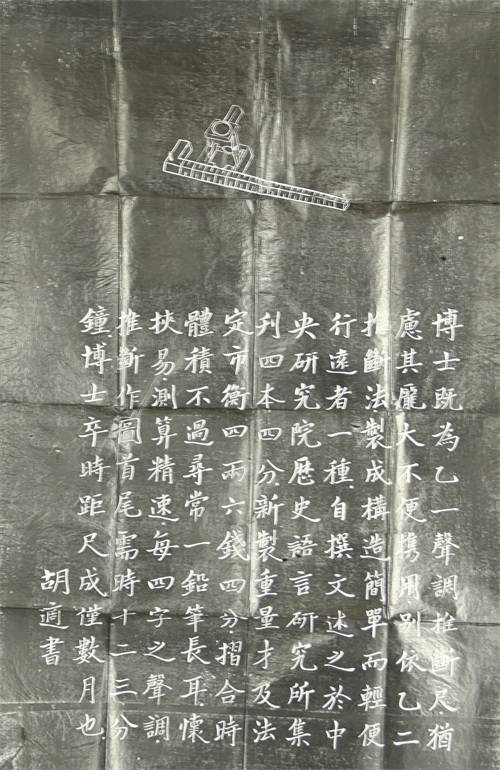 博士既為乙一聲調推斷尺猶
慮其龐大不便携用别依乙二
推斷法製成構造簡單而輕便
行遠者一種自撰文述之於中
央研究院歷史語言研究所集
刊四本四分新製重量才及法
定市衡四兩六錢四分摺合時
體積不過尋常一鉛筆長耳懷
挾易測算精速每四字之聲調
推斷作圖首尾需時十二三分
鐘博士卒時距尺成僅數月也
胡適書